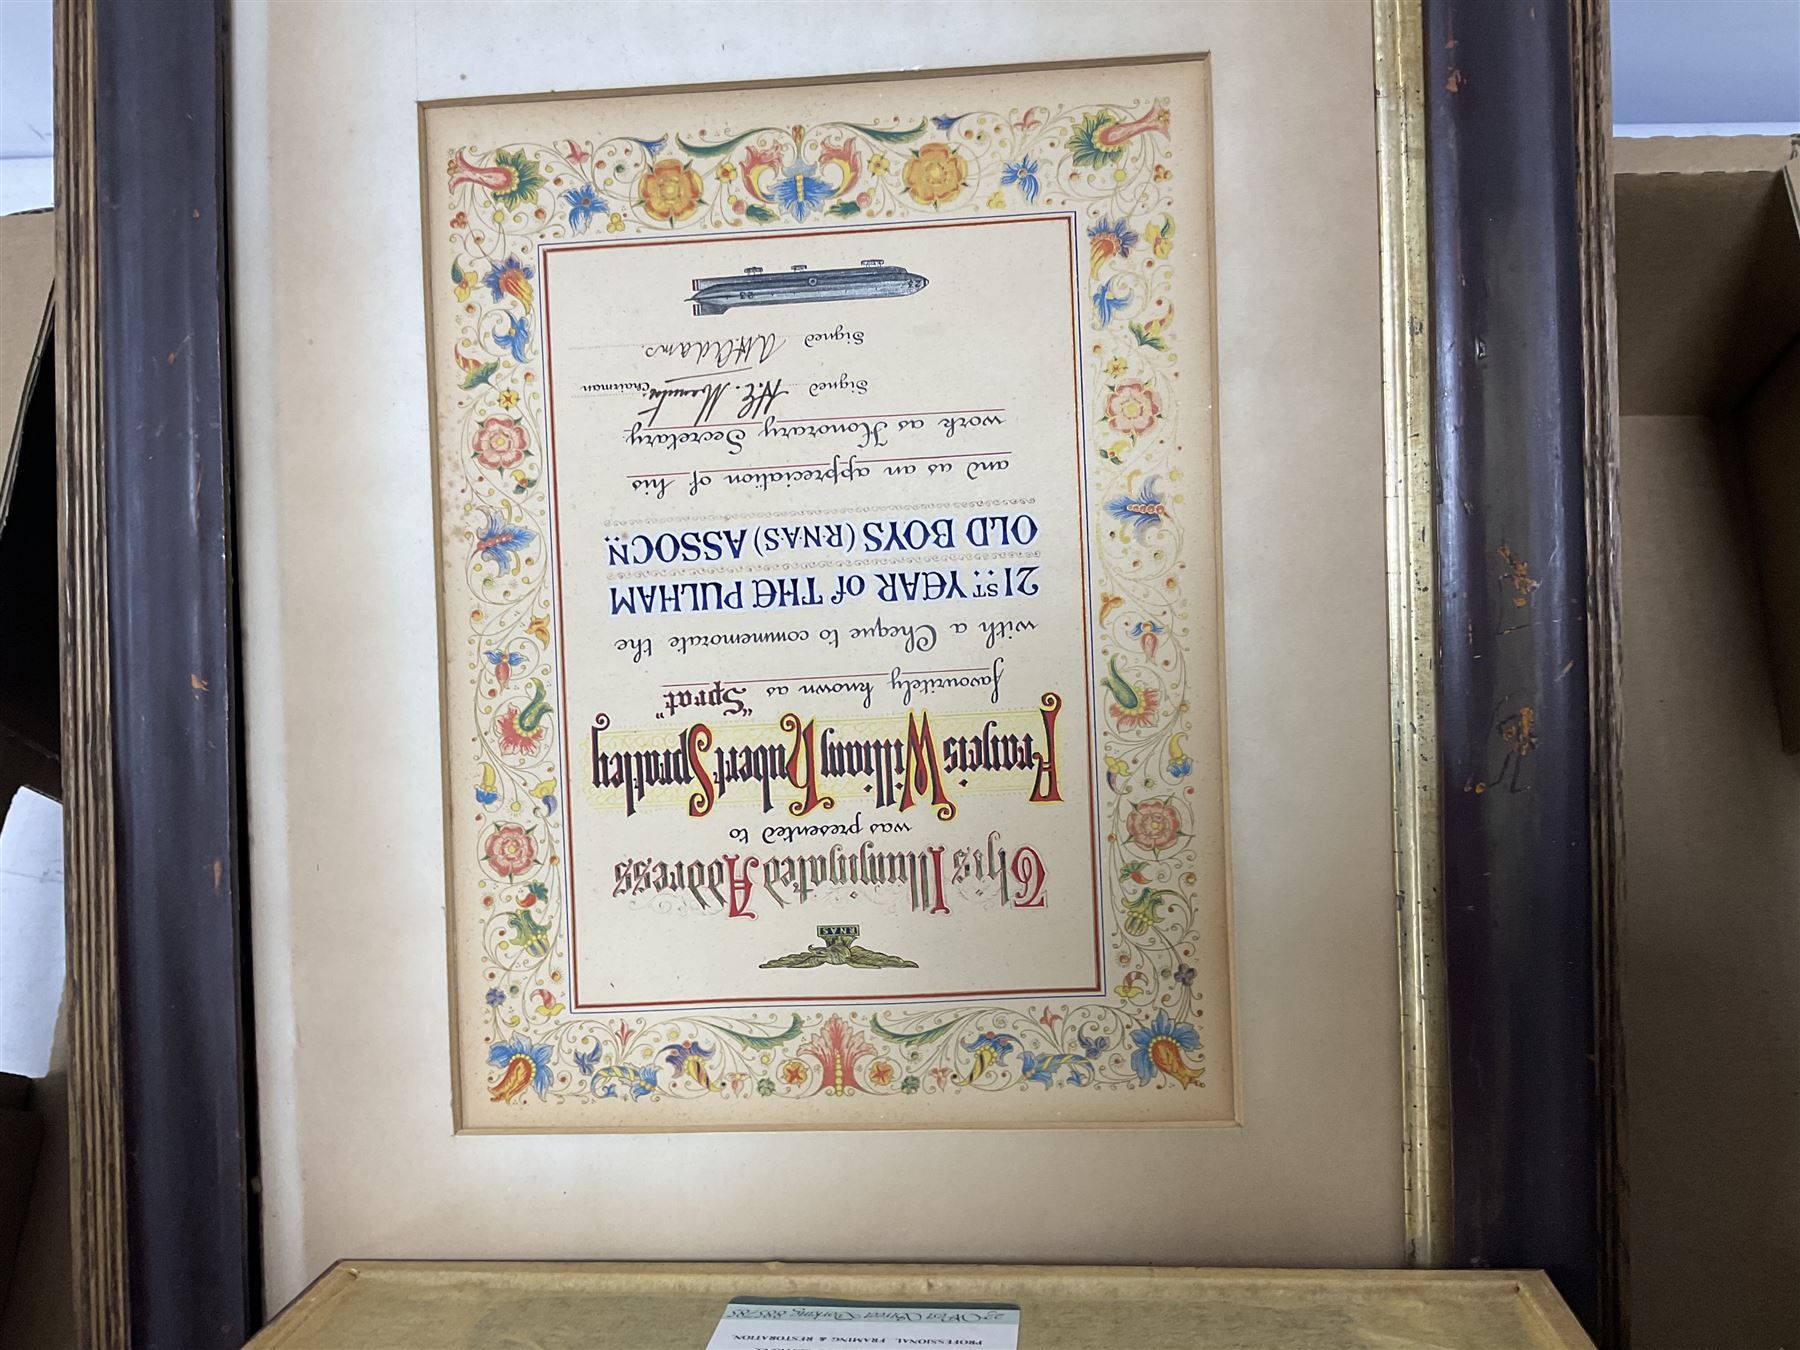 RNAS
This Illuminated Address
was presented to
Francis William Rubert Spratley
favouritely known as "Sprat"
with a Cheque to commemorate the
21ST YEAR of THE PULHAM
OLD BOYS (R·N·A·S) ASSOCN
and as an appreciation of his
work as Honorary Secretary.
Signed H.E. Chairman
Signed A.H. Adams.
23 23
PROFESSIONAL FRAMING & RESTORATION